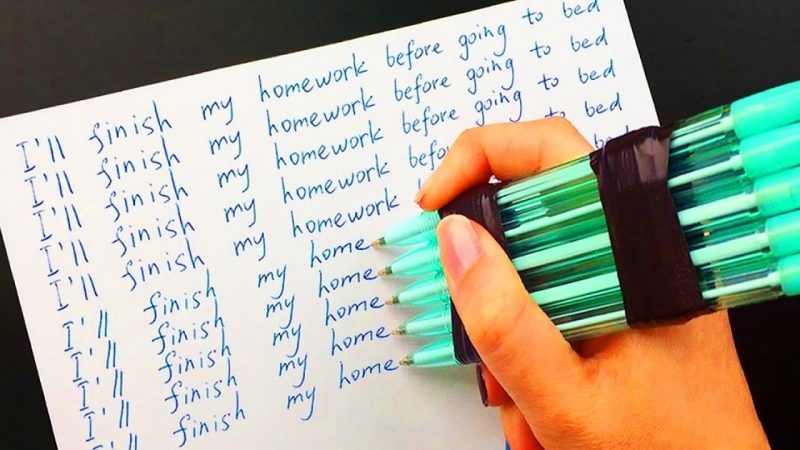 I'll finish my homework before going to bed
I'll finish my homework before going to bed
I'll finish my homework before going to bed
I'll finish my homework befo to bed
I'll finish my homework bed
I'll finish my home
I'll finish my home
I'll finish my home
I'll finish my home
I'll finish my home